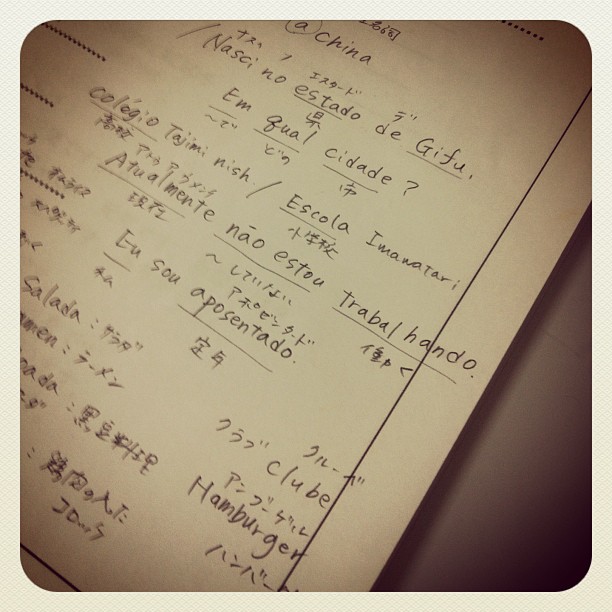 a china
ナスィ
/Nasci no estado de Gifu.
エスタード デ
県
Em qual cidade?
〜で どの 市
colégio Tajimi nishi. / Escola Imawatari
高校 小学校
Atualmente não estou trabalhando.
現在 〜していない 働く
Eu sou aposentado.
私 アポゼンタード
定年
salada : サラダ
men : ラーメン
ada : 黒豆料理
: 鶏肉の入った
コロッケ
クルーブ
クラブ Clube
アンブーゲル
Hamburger
ハンバーガ